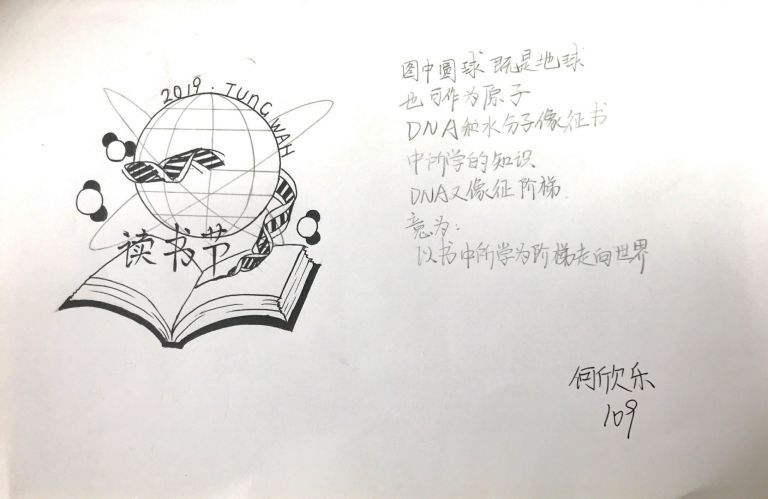 2019.TUNG WAH
读书节
图中圆球既是地球
也可作为原子
DNA和水分子像征书
中所学的知识
DNA又像征阶梯.
意为:
以书中所学为阶梯走向世界
何欣乐
109